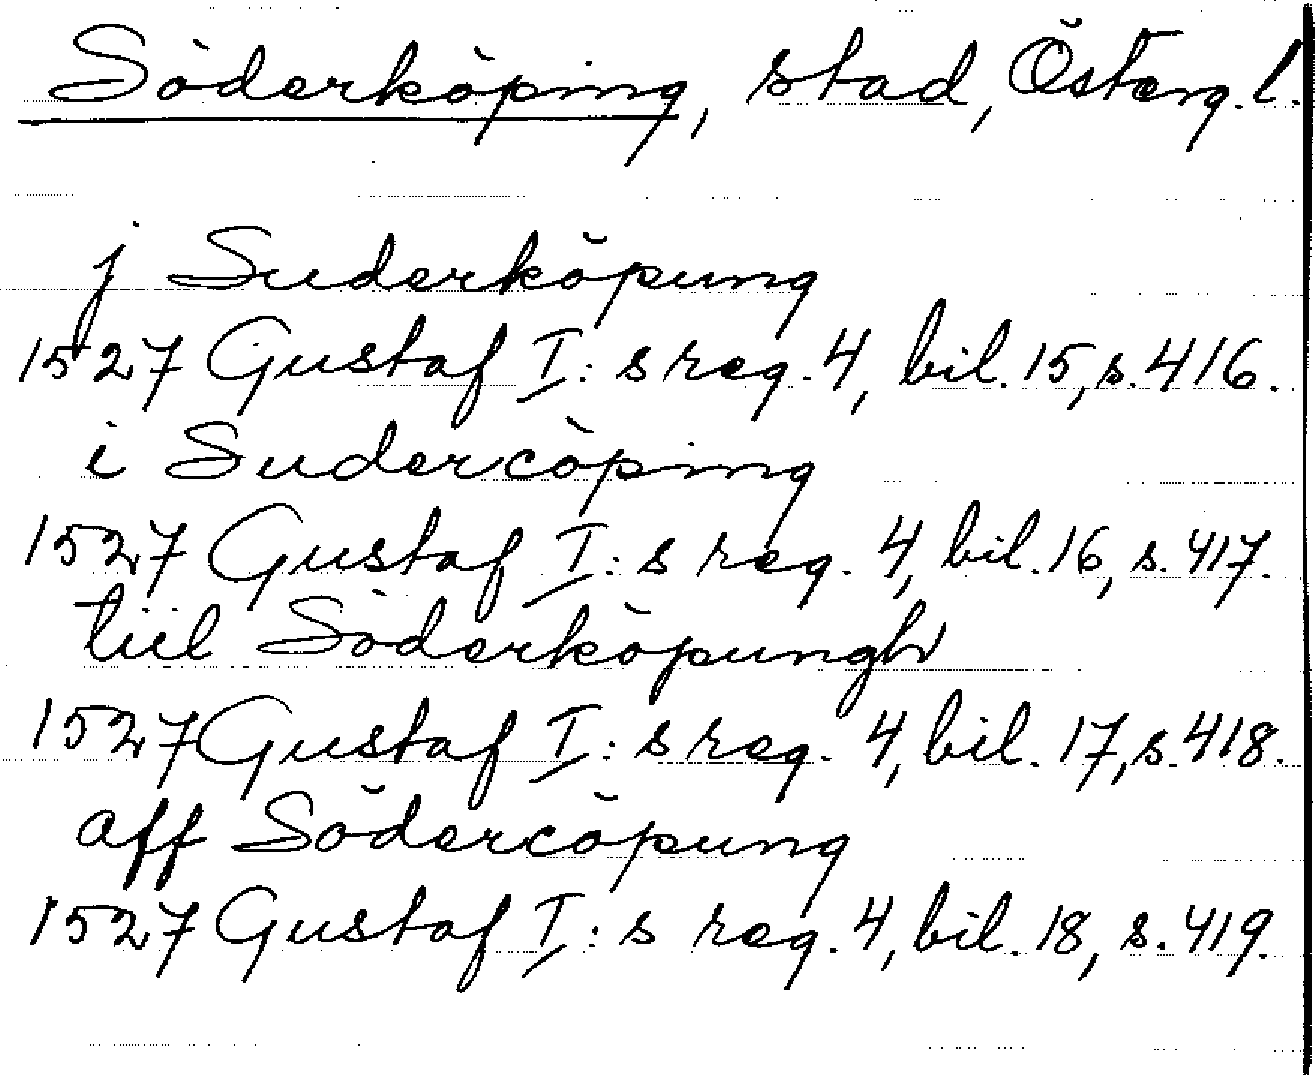 Söderköping, stad, Österg. l.
j Suderköpung
1527 Gustaf I:s reg. 4, bil. 15, s. 416.
i Sudercöping
1527 Gustaf I:s reg. 4, bil. 16, s. 417.
tiil Söderköpungh
1527 Gustaf I:s reg. 4, bil. 17, s. 418.
aff Södercöpung
1527 Gustaf I:s reg. 4, bil. 18, s. 419.